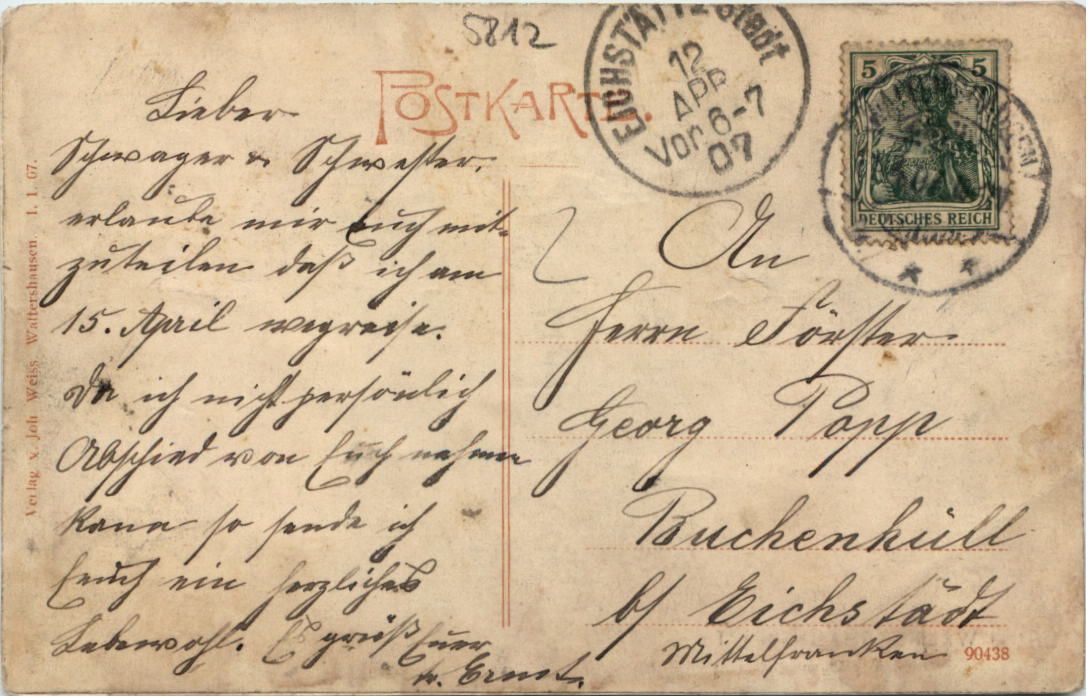 5812
POSTKARTE.
EICHSTÄTT 2 Stadt
12
APR
Vor. 6-7
07
5 5
DEUTSCHES REICH
Lieber
Schwager & Schwester.
erlaube mir Euch mit-
zuteilen daß ich am
15. April wegreise.
Da ich nicht persönlich
Abschied von Euch nehmen
kann so sende ich
Euch ein herzliches
Lebewohl. Es grüßt Euer
Ernst.
An
Herrn Förster
Georg Popp
Buchenhüll
b/ Eichstädt
Mittelfranken
90438
Verlag v. Joh Weiss Wattershausen. 1. 1. 07.